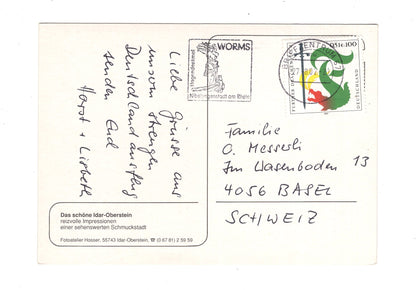 Liebe Grüsse aus
unserm strengen
Deutschlandausflug
senden Euch
Horst + Lisbeth
WORMS
Nibelungenstadt am Rhein
BRIEFZENTRUM
100
DEUTSCHLAND
Familie
O. Messerli
Im Wasenboden 13
4056 BASEL
SCHWEIZ
Das schöne Idar-Oberstein
reizvolle Impressionen
einer sehenswerten Schmuckstadt
Fotoatelier Hosser, 55743 Idar-Oberstein, ☎ (0 67 81) 2 59 59